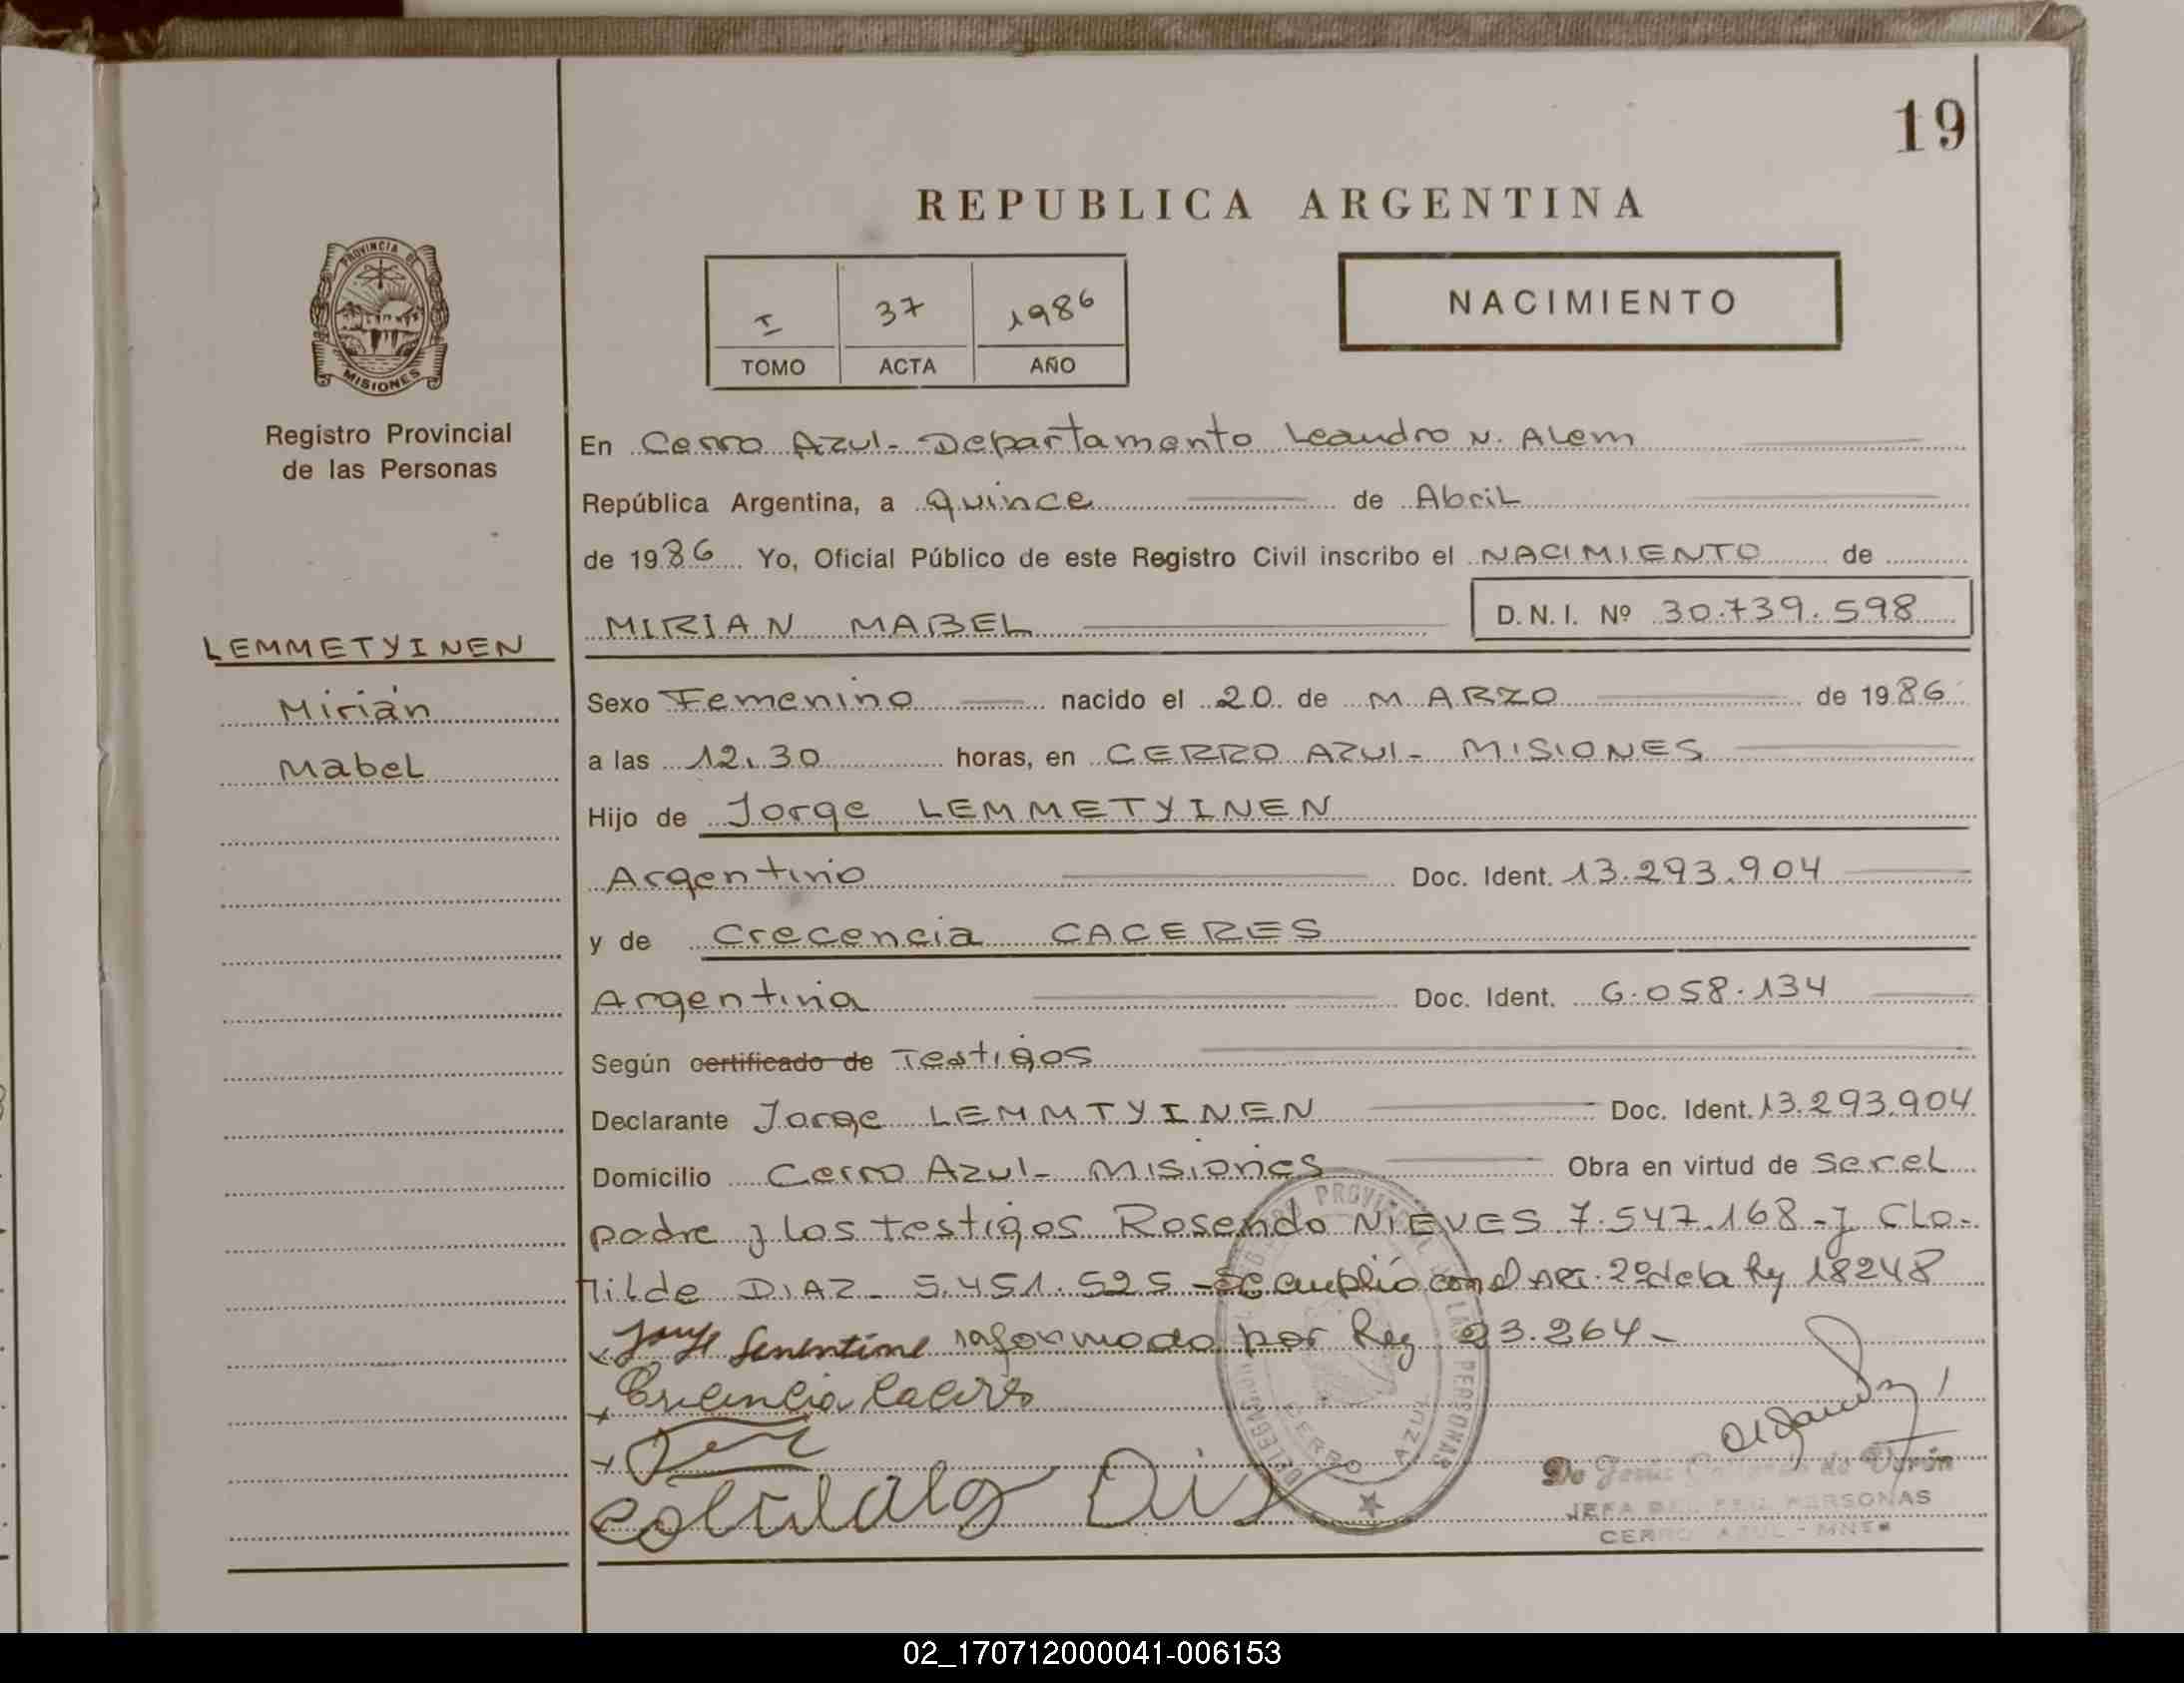 19
REPUBLICA ARGENTINA
PROVINCIA DE
MISIONES
Registro Provincial
de las Personas
I 37 1986
TOMO ACTA AÑO
NACIMIENTO
En Cerro Azul - Departamento Leandro N. Alem
República Argentina, a Quince de Abril
de 1986 Yo, Oficial Público de este Registro Civil inscribo el NACIMIENTO de
MIRIAN MABEL D.N.I. Nº 30.739.598
LEMMETYINEN
Mirian
Mabel
Sexo Femenino nacido el 20 de MARZO de 1986
a las 12.30 horas, en CERRO AZUL - MISIONES
Hijo de Jorge LEMMETYINEN
Argentino Doc. Ident. 13.293.904
y de Crecencia CACERES
Argentina Doc. Ident. 6.058.134
Según certificado de Testigos
Declarante Jorge LEMMTYINEN Doc. Ident. 13.293.904
Domicilio Cerro Azul - Misiones Obra en virtud de Ser el
padre y los testigos Rosendo NIEVES 7.547.168 - y Clo-
tilde DIAZ - 5.451.525 - Se cumplio con el ART. 2º de la ley 18248
informado por ley 23.264 -
Crecencia Caceres
PERSONAS
CERRO AZUL
de Verón
JEFA DEL REG. PERSONAS
CERRO AZUL - MNES
02_170712000041-006153